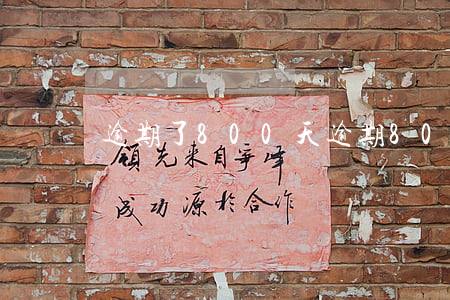 逾期了800天逾期80
領先来自争峰
成功源於合作